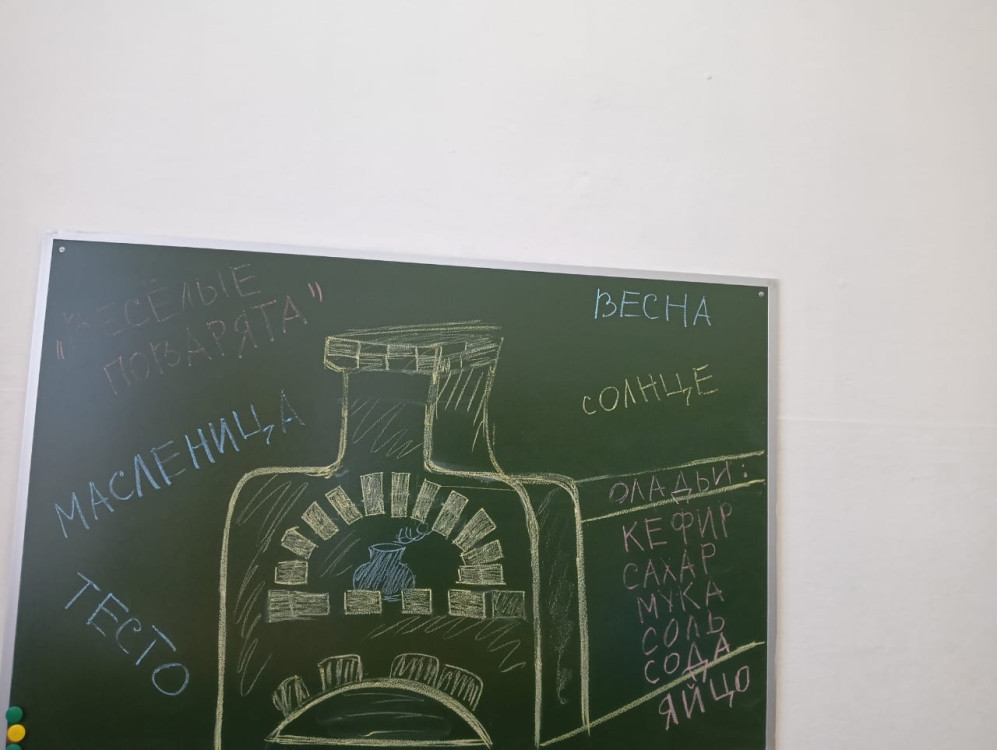 "ВЕСЁЛЫЕ
ПОВАРЯТА"
МАСЛЕНИЦА
ТЕСТО
ВЕСНА
СОЛНЦЕ
ОЛАДЬИ:
КЕФИР
САХАР
МУКА
СОЛЬ
СОДА
ЯЙЦО